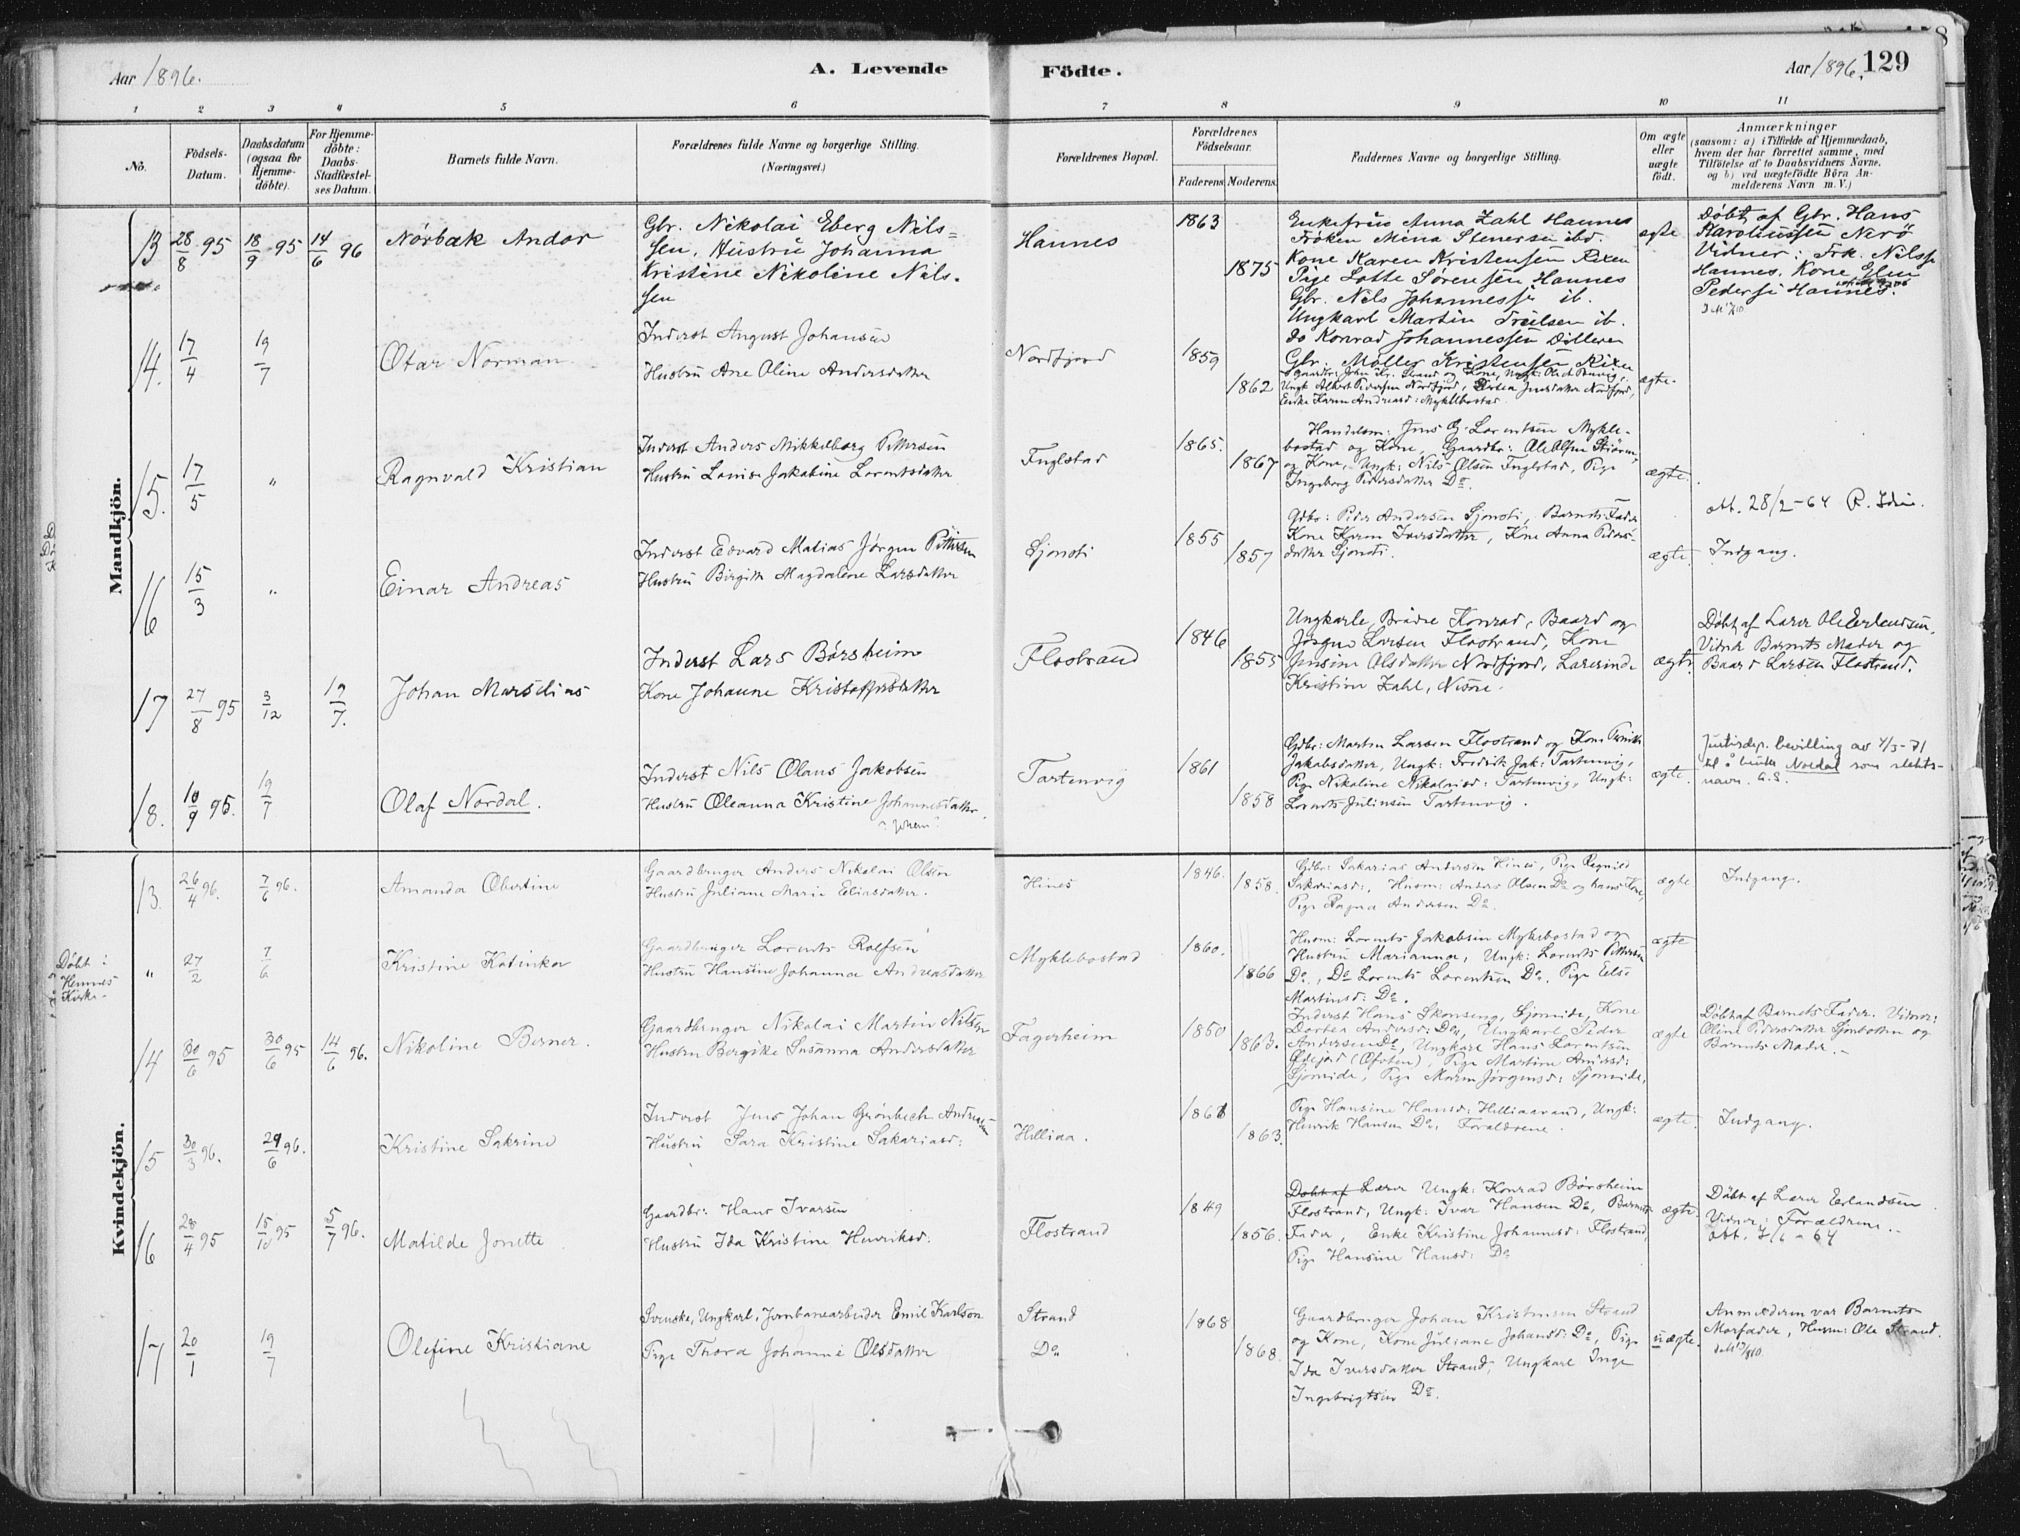 Aar 1896. A. Levende Födte. Aar 1896. 129
1 2 3 4 5 6 7 8 9 10 11
No.
Födsels-Datum.
Daabsdatum (ogsaa for Hjemmedöbte).
For Hjemmedöbte: Daabs-Stadfæstelses Datum.
Barnets fulde Navn.
Forældrenes fulde Navne og borgerlige Stilling. (Næringsvei.)
Forældrenes Bopæl.
Forældrenes Födselsaar.
Faderens Moderens.
Faddernes Navne og borgerlige Stilling.
Om ægte eller uægte født.
Anmærkninger
(saasom: a) i Tilfælde af Hjemmedaab,
hvem der har forrettet samme, med
Tilföielse af to Daabsvidners Navne,
og b) ved uægtefödte Börn An-
melderens Navn m. V.)
Mandkjön.
13 28/8 95 18/9 95 14/6 96 Nørbæk Andor
Gbr. Nikolai Eberg Nils=
sen, Hustru Johanna
Kristine Nikoline Nils-
sen
Hannes 1863 1875
Enkefru Anna Zahl Hannes
Frøken Mina Stenersen ibd.
Kone Karen Kristensen Rixen
Pige Lotte Sørensen Hannes
Gbr. Nils Johannessen ib.
Ungkarl Martin Troelsen ib.
do Konrad Johannessen Dilleren
Gbr. Møller Kristensen Rixen
ægte
Døbt af Gbr. Hans
Karoliussen Nerø
Vidner: Frk. Nilssen
Hannes, Kone Elen
Pedersen Hannes.
14. 17/4 19/7 Otar Norman
Inderst August Johansen
Hustru Ane Oline Andersdatter
Nordfjord 1859 1862
Ungk Albert Pedersen Nordfjord,
Enke Karen Andreasd: Myklebostad
ægte.
15. 17/5 " Ragnvald Kristian
Inderst Anders Mikkelborg Pettersen
Hustru Lovise Jakobine Lorentsdatter
Fuglstad 1865. 1867
Handelsm: Jens G. Lorentsen Mykle-
bostad og Kone, Gaardbr: Ole Olsen
og Kone, Ungk: Nils Olsen Fuglstad, Pige
Ingeborg Pedersdatter Do.
ægte.
att. 28/2-64
16 15/3 " Einar Andreas
Inderst Edvard Matias Jørgen Pettersen
Hustru Birgitte Magdalene Larsdatter
Sjonsti 1855 1857
Gdbr: Peder Andersen Sjonsti, Barnets Fader
Kone Karen Iversdatter, Kone Anna Peders-
datter Sjonsti.
ægte Indgang.
17 27/8 95 3/12 19/7. Johan Marselius
Inderst Lars Børsheim
Kone Johanne Kristoffersdatter
Flostrand 1846 1855
Ungkarle, Brødre Konrad, Baard og
Jørgen Larsen Flostrand, Kone
Jensine Olsdatter Nordfjord, Lærerinde
Kristine Zahl, Nesne.
ægte
Døbt af Lærer Ole Erlendsen.
Vidner Barnets Moder og
Baard Larsen Flostrand.
18. 10/9 95. 19/7 Olaf Nordal.
Inderst Nils Olaus Jakobsen
Hustru Oleanna Kristine Johannesdatter.
Tartenvig 1861 1858
Gdbr: Morten Larsen Flostrand og Kone
Jakobsdatter, Ungk: Fredrik Jak: Tartenvig,
Pige Nikoline Nikolaisd: Tartenvig, Ungk:
Lorents Juliusen Tartenvig.
ægte.
Justisdep. bevilling av 4/3-71
til å bruke Nordal som slekts-
navn. G.S.
Kvindekjön.
13. 26/4 96. 7/6 96. Amanda Obertine
Gaardbruger Anders Nikolai Olsen
Hustru Juliane Marie Eliasdatter.
Hines 1846. 1858.
Gdbr: Sakarias Andersen Hines, Pige Regnild
Sakariasd:, Husm: Anders Olsen Do og hans Kone,
Pige Ragna Andersen Do.
ægte Indgang.
Døbt i
Hemnes
Kirke.
" 27/2 7/6 Kristine Katinka
Gaardbruger Lorents Rolfsen
Hustru Hansine Johanna Andreasdatter
Myklebostad 1860. 1866
Husm: Lorents Jakobsen Myklebostad og
Hustru Marianna, Ungk: Lorents Pettersen
Do., Do Lorents Lorentsen Do. Pige Else
Martinsd: Do.
ægte
14 30/6 95 30/6 95 14/6 96. Nikoline Berner.
Gaardbruger Nikolai Martin Nilsen
Hustru Bergitte Susanna Andersdatter
Fagerheim 1850 1863.
Inderst Hans Skonseng, Sjomide, Kone
Dortea Andersd: Do, Ungkarl Peder
Andersen Do, Ungkarl Hans Lorentsen
(Ofoten), Pige Martine Andersd:
Sjomide, Pige Maren Jørgensd: Sjomide.
ægte
Døbt af Barnets Fader. Vidner:
Oline Pedersdatter Sjonbotten og
Barnets Moder.
15 30/3 96. 29/6 96. Kristine Sakrine
Inderst Jens Johan Grønbech Andreasen
Hustru Sara Kristine Sakariasd:
Helliaa. 1861 1863.
Pige Hansine Hansd: Helliaavand, Ungk:
Henrik Hansen Do, Forældrene.
ægte. Indgang.
16 28/4 95 15/10 95 5/7 96. Matilde Jonette
Gaardbr: Hans Ivarsen
Hustru Ida Kristine Henriksd:
Flostrand 1849 1856.
Døbt af Lærer Ungk: Konrad Børsheim
Flostrand, Ungk: Ivar Hansen Do, Barnets
Fader, Enke Kristine Johannesd: Flostrand,
Pige Hansine Hansd: Do
ægte.
Døbt af Lærer Erlandsen
Vidner: Forældrene.
17 20/1 19/7 Olefine Kristiane
Svenske, Ungkarl, Jernbanearbeider Emil Karlson
Pige Thora Johanne Olsdatter
Strand
Do
1868 1868.
Gaardbruger Johan Kristensen Strand
og Kone, Kone Juliane Johansd: Do, Pige
Ida Iversdatter Strand, Ungkarl Inge
Ingebrigtsen Do.
uægte.
Anmelderen var Barnets
Morfader, Husm: Ole Strand.